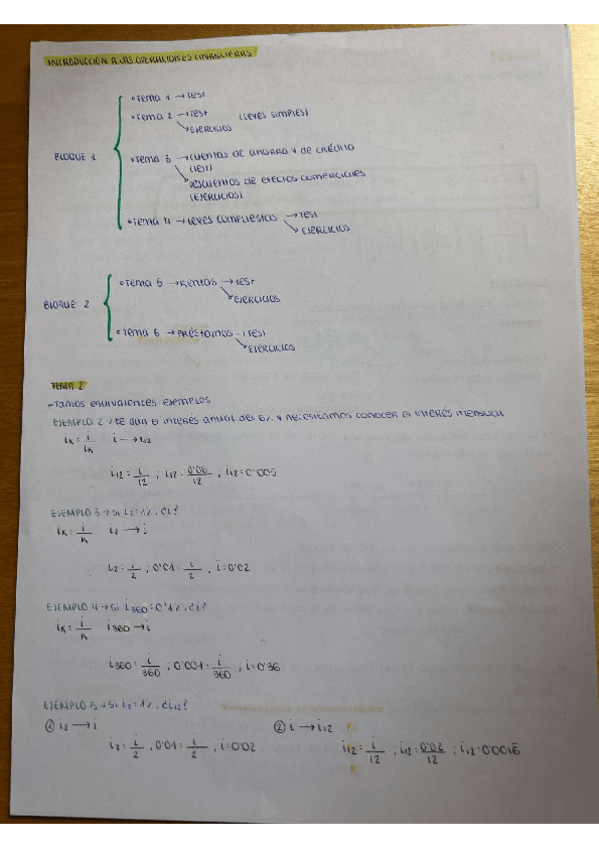 INTRODUCCIÓN A LAS OPERACIONES FINANCIERAS
BLOQUE 1
• Tema 1 → Test
• Tema 2 → Test (LEYES SIMPLES)
↘ EJERCICIOS
• Tema 3 → CUENTAS DE AHORRO Y DE CRÉDITO
(TEST)
↘ DESCUENTOS DE EFECTOS COMERCIALES
(EJERCICIOS)
• Tema 4 → LEYES COMPUESTAS → TEST
↘ EJERCICIOS
BLOQUE 2
• Tema 5 → RENTAS → TEST
↘ EJERCICIOS
• Tema 6 → PRÉSTAMOS → TEST
↘ EJERCICIOS
TEMA 2
- Tantos equivalentes ejemplos
EJEMPLO 2 → te dan el interés anual del 6% y necesitamos conocer el interés mensual
iₖ = i/iₖ i → i₁₂
i₁₂ = i/12 ; i₁₂ = 0'06/12 ; i₁₂ = 0'005
EJEMPLO 3 → Si i₂ = 1%, ¿i?
iₖ = i/k i₂ → i
i₂ = i/2 ; 0'01 = i/2 ; i = 0'02
EJEMPLO 4 → Si i₃₆₀ = 0'1%, ¿i?
iₖ = i/k i₃₆₀ → i
i₃₆₀ = i/360 ; 0'001 = i/360 ; i = 0'36
EJEMPLO 5 → Si i₂ = 1%, ¿i₁₂?
① i₂ → i ② i → i₁₂
i₂ = i/2 ; 0'01 = i/2 ; i = 0'02 i₁₂ = i/12 ; i₁₂ = 0'02/12 ; i₁₂ = 0'0016